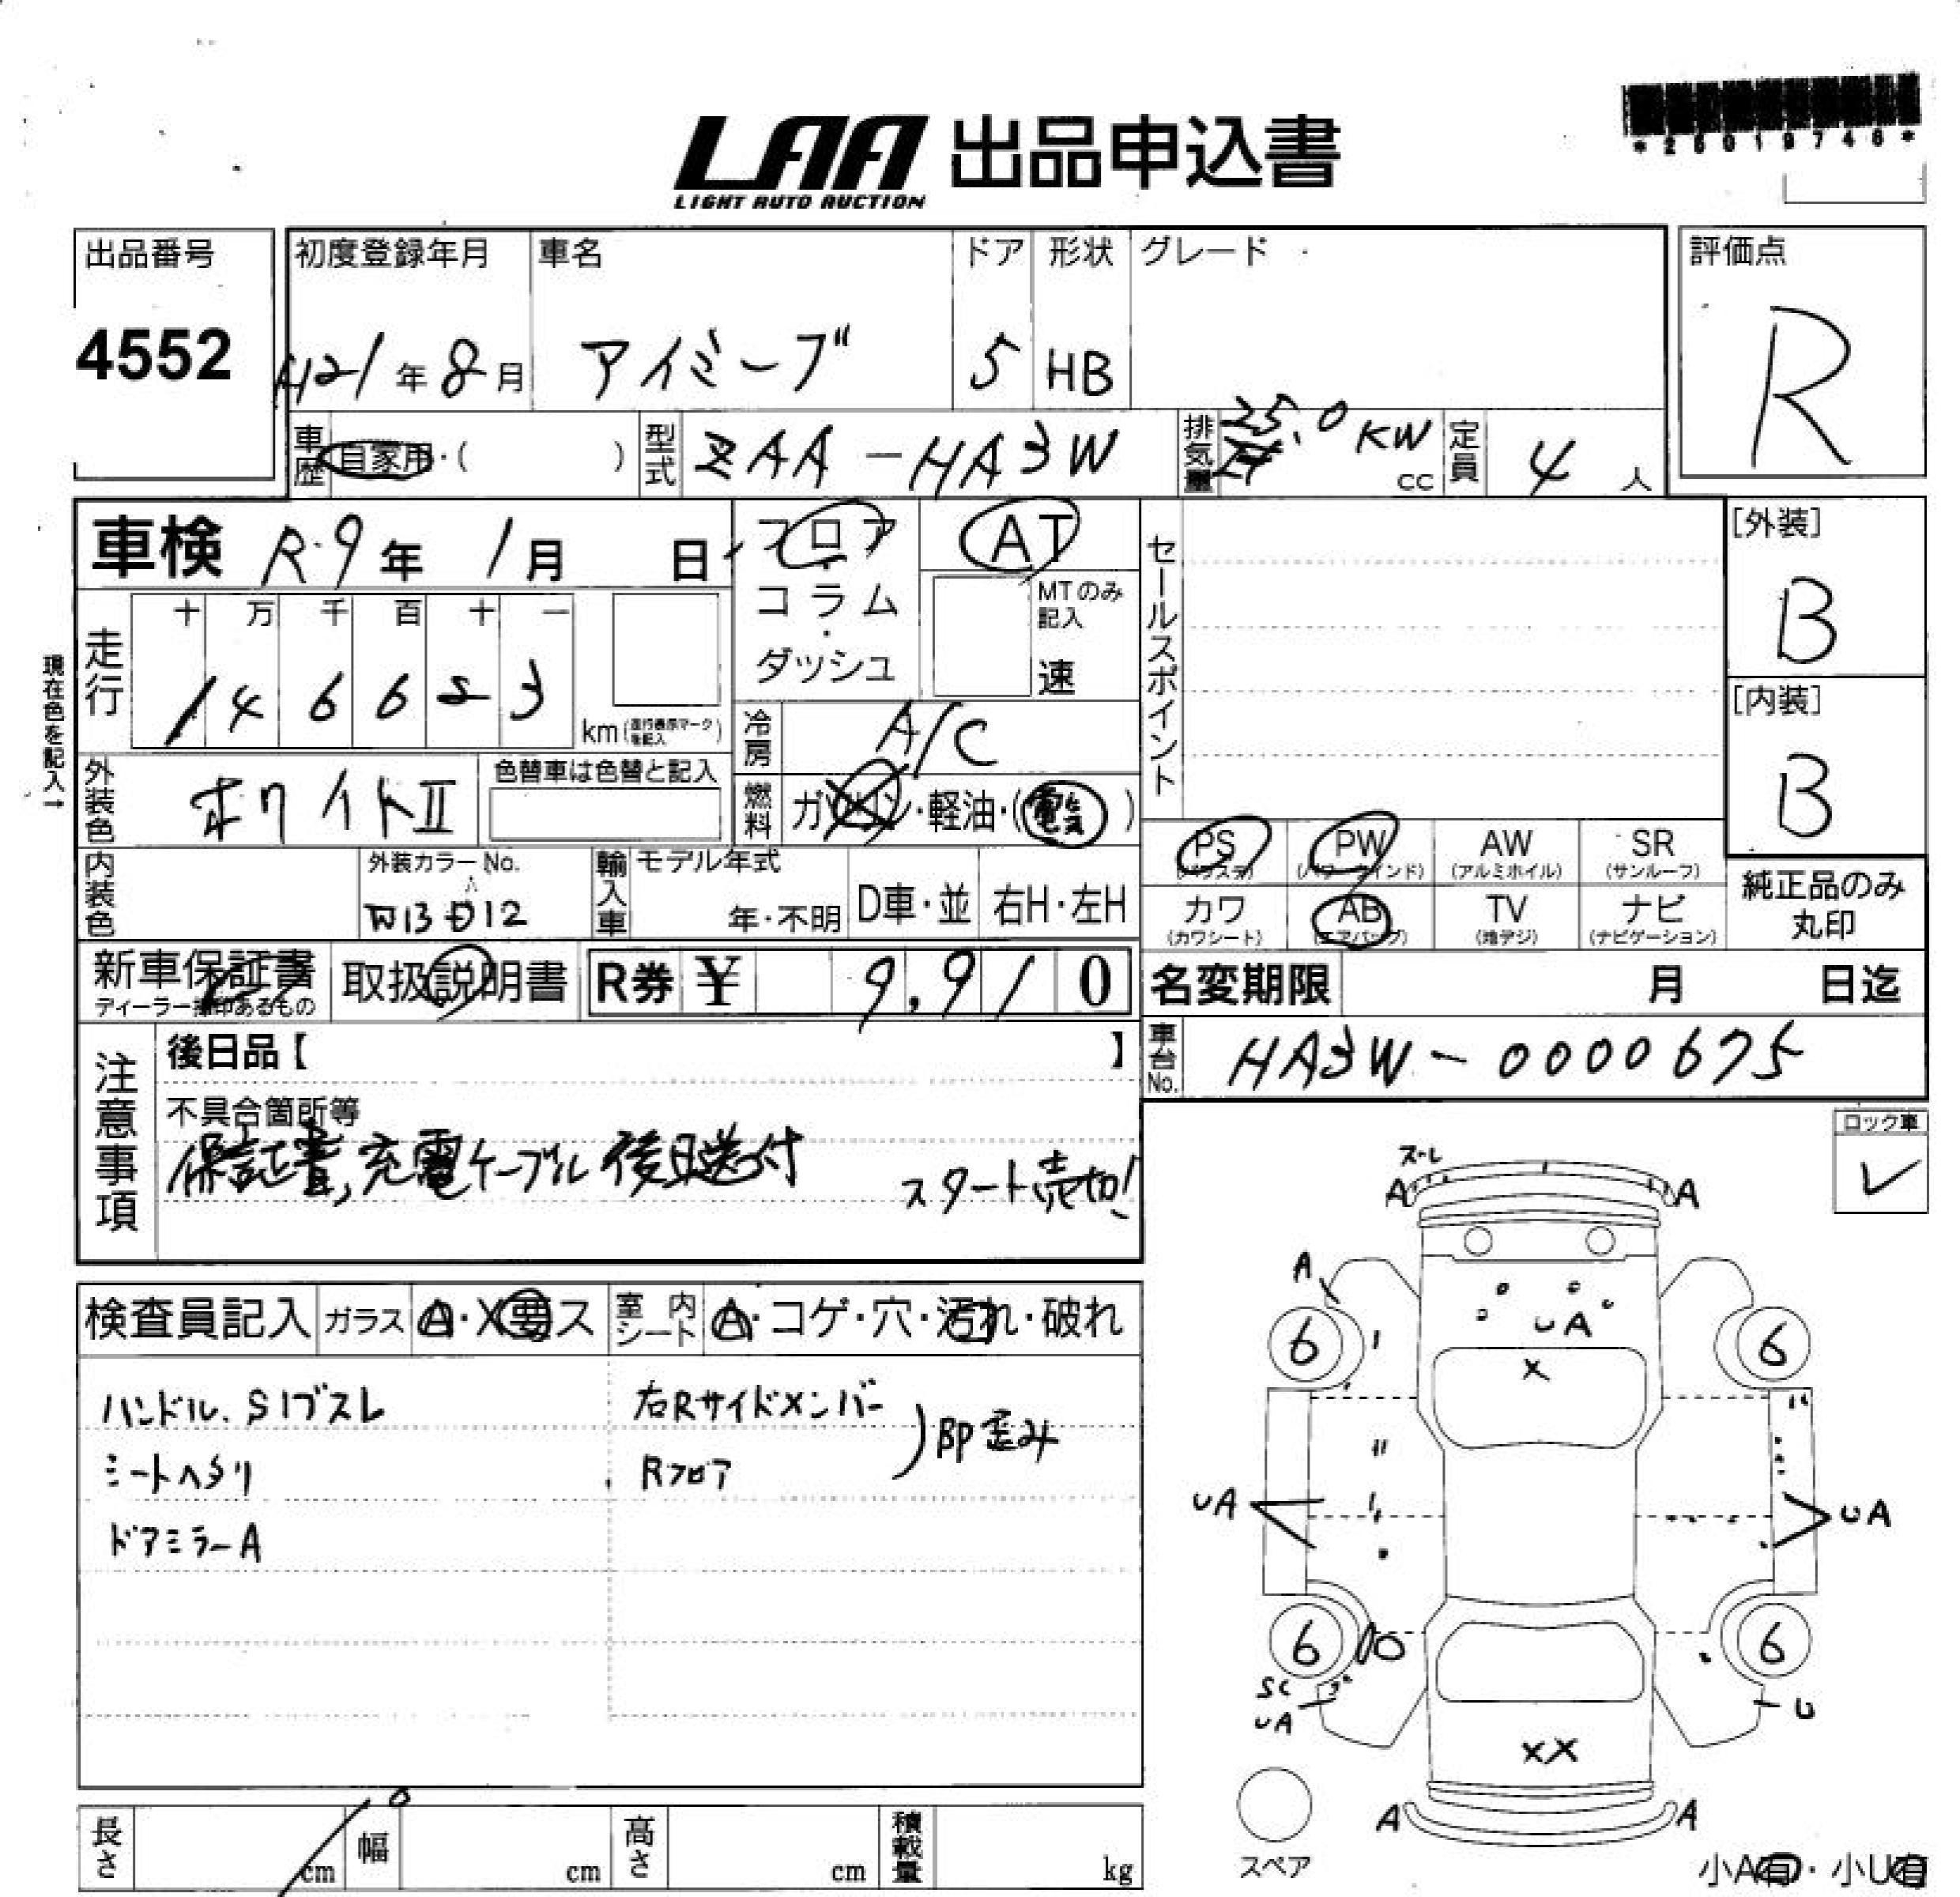 *26019746*
LAA 出品申込書
LIGHT AUTO AUCTION
出品番号
4552
初度登録年月
H21年8月
車名
アイミーブ
ドア
5
形状
HB
グレード
評価点
R
車歴 自家用・( )
型式 ZAA-HA3W
排気量 25.0 KW cc
定員 4人
車検 R9年1月 日
フロア・コラム・ダッシュ
AT
MTのみ記入
速
セールスポイント
[外装]
B
[内装]
B
現在色を記入→
走行
十 万 千 百 十 一
1 4 6 6 5 3
km(走行表示マークを記入)
冷房 A/C
外装色 ホワイトII
色替車は色替と記入
燃料 ガソリン・軽油・(電気)
PS
(パワステ)
PW
(パワーウインド)
AW
(アルミホイル)
SR
(サンルーフ)
カワ
(カワシート)
AB
(エアバッグ)
TV
(地デジ)
ナビ
(ナビゲーション)
純正品のみ
丸印
内装色
外装カラーNo.
輸入車
モデル年式
年・不明
D車・並
右H・左H
新車保証書
ディーラー捺印あるもの
取扱説明書
R券 ¥ 9,910
名変期限 月 日迄
車台No. HA3W-0000675
注意事項
後日品【 】
不具合箇所等
保証書,充電ケーブル後日送付
スタート売切!
ロック車
✓
検査員記入
ガラス A・X要ス
室内シート A・コゲ・穴・汚れ・破れ
ハンドル、S1ブスレ
シートヘタリ
ドアミラーA
右Rサイドメンバー
Rフロア
BP歪み
スレ
A A
A
UA
6 6
X
UA UA
6 6
SC
UA
U
XX
A A
スペア
小A有・小U有
長さ cm
幅 cm
高さ cm
積載量 kg